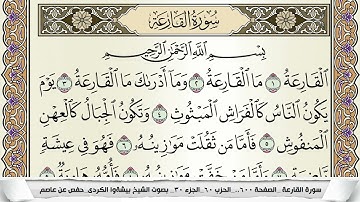 سُورَةُ القَارِعَةِ
بِسْمِ اللَّهِ الرَّحْمَٰنِ الرَّحِيمِ
الْقَارِعَةُ ١ مَا الْقَارِعَةُ ٢ وَمَا أَدْرَىٰكَ مَا الْقَارِعَةُ ٣ يَوْمَ
يَكُونُ النَّاسُ كَالْفَرَاشِ الْمَبْثُوثِ ٤ وَتَكُونُ الْجِبَالُ كَالْعِهْنِ
الْمَنفُوشِ ٥ فَأَمَّا مَن ثَقُلَتْ مَوَٰزِينُهُ ٦ فَهُوَ فِي عِيشَةٍ
سورة القارعة_ الصفحة ٦٠٠_ الحزب ٦٠_الجزء ٣٠_ بصوت الشيخ بيشەوا الكردي_ حفص عن عاصم